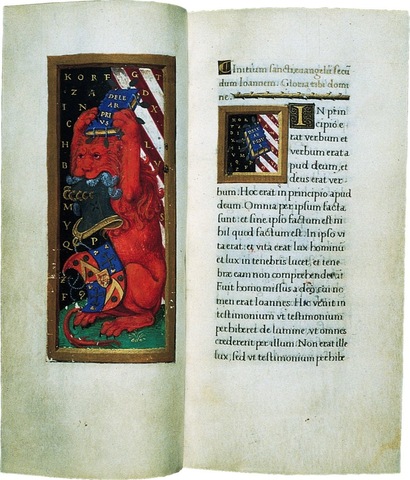 K O R F G T
DELE
AR
PRI
VS
Initium sancti euangelii secu
dum Ioannem. Gloria tibi domi
ne.
IN prin
cipio e
rat verbum et
verbum erat a
pud deum, et
deus erat ver-
bum. Hoc erat in principio apud
deum. Omnia per ipsum facta
sunt: et sine ipso factum est ni
hil quod factum est. In ipso vi
ta erat: et vita erat lux hominu
et lux in tenebris lucet, et tene-
brae eam non comprehenderunt
Fuit homo missus a deo, cui no
men erat Ioannes. Hic venit in
testimonium vt testimonium
perhiberet de lumine, vt omnes
crederent per illum. Non erat ille
lux, sed vt testimonium perhibe